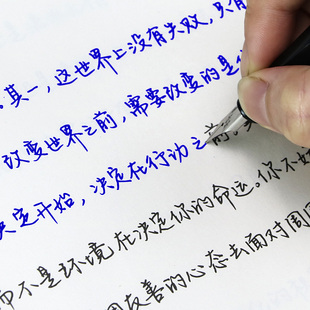 。其一，这世界上没有失败，只有
改变世界之前，需要改变的是
决定开始，决定在行动之前，
而不是环境在决定你的命运。你不
友善的心态去面对周围